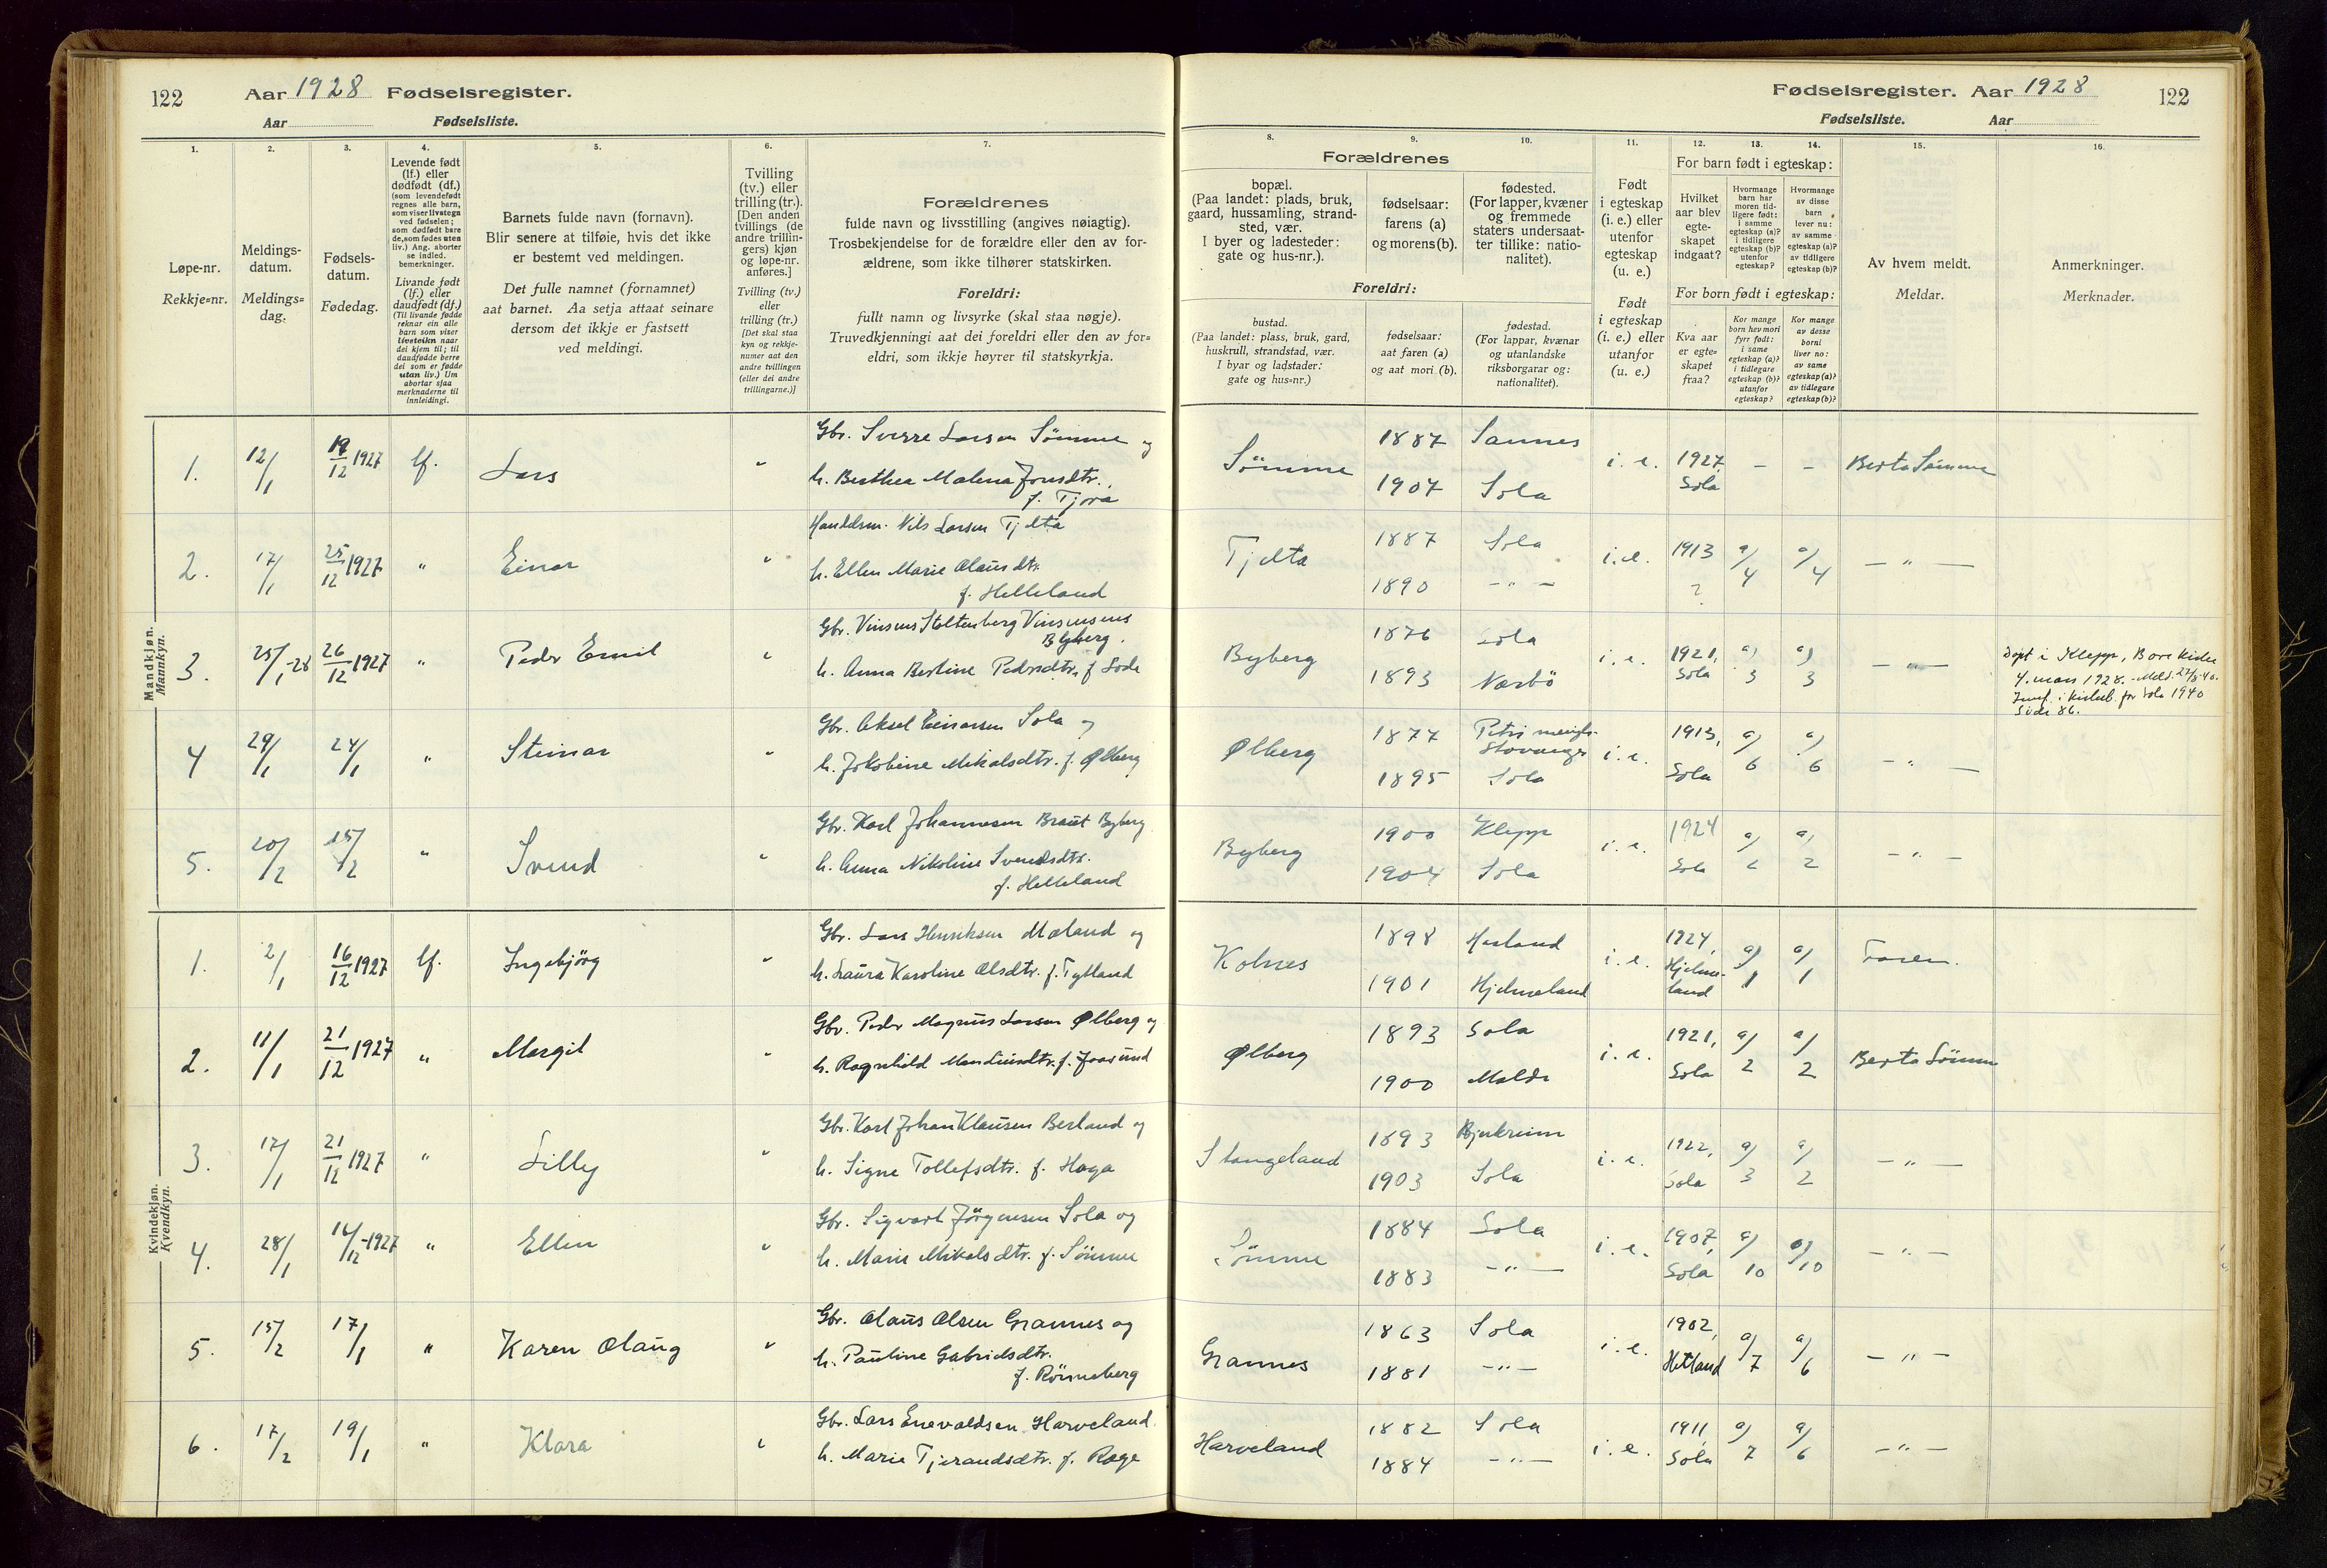 122
Aar 1928 Fødselsregister.
Aar
Fødselsliste.
Fødselsregister. Aar 1928
122
Fødselsliste.
Aar
1.
Løpe-nr.
Rekkje=nr.
2.
Meldings-
datum.
Meldings=
dag.
3.
Fødsels-
datum.
Fødedag.
4.
Levende født
(lf.) eller
dødfødt (df.)
(som levendefødt
regnes alle barn,
som viser livstegn
ved fødselen;
som dødfødt bare
de, som fødes uten
liv.) Ang. aborter
se indled.
bemerkninger.
Livande født
(lf.) eller
daudfødt (df.)
(Til livande fødde
reknar ein alle
barn som viser
livsteikn naar
dei kjem til; til
daudfødde berre
dei som er fødde
utan liv.) Um
abortar sjaa
merknaderne til
innleidingi.
5.
Barnets fulde navn (fornavn).
Blir senere at tilføie, hvis det ikke
er bestemt ved meldingen.
Det fulle namnet (fornamnet)
aat barnet. Aa setja attaat seinare
dersom det ikkje er fastsett
ved meldingi.
6.
Tvilling
(tv.) eller
trilling (tr.).
[Den anden
tvillings (de
andre trillin-
gers) kjøn
og løpe-nr.
anføres.]
Tvilling (tv.)
eller
trilling (tr.)
[Det skal staa
kyn og rekkje-
numer aat den
andre tvillingen
(eller dei andre
trillingarne.)]
7.
Forældrenes
fulde navn og livsstilling (angives nøiagtig).
Trosbekjendelse for de forældre eller den av for-
ældrene, som ikke tilhører statskirken.
Foreldri:
fullt namn og livsyrke (skal staa nøgje).
Truvedkjenningi aat dei foreldri eller den av for=
eldri, som ikkje høyrer til statskyrkja.
8.
9.
10.
Forældrenes
bopæl.
(Paa landet: plads, bruk,
gaard, hussamling, strand-
sted, vær.
I byer og ladesteder:
gate og hus-nr.).
fødselsaar:
farens (a)
og morens (b).
fødested.
(For lapper, kvæner
og fremmede
staters undersaat-
ter tillike: natio-
nalitet).
Foreldri:
bustad.
(Paa landet: plass, bruk, gard,
huskrull, strandstad, vær.
I byar og ladstader:
gate og hus=nr.)
fødselsaar:
aat faren (a)
og aat mori (b).
fødestad.
(For lappar, kvænar
og utanlandske
riksborgarar og:
nationalitet).
11.
Født
i egteskap
(i. e.) eller
utenfor
egteskap
(u. e.)
Født
i egteskap
(i. e.) eller
utanfor
(u. e.)
12.
13.
14.
For barn født i egteskap:
Hvilket
aar blev
egte-
skapet
indgaat?
Hvormange
barn har
moren tid-
ligere født:
i samme
egteskap (a)?
i tidligere
egteskap (b)?
utenfor
egteskap?
Hvormange
av disse
barn
lever nu:
av samme
egteskap (a)?
av tidligere
egteskap (b)?
For born født i egteskap:
Kva aar
er egte=
skapet
fraa?
Kor mange
born hev mori
fyrr født:
i same
egteskap (a)?
i tidlegare
egteskap (b)?
utanfor
egteskap?
Kor mange
av desse
borni
liver no:
av same
egteskap (a)?
av tidlegare
egteskap (b)?
15.
Av hvem meldt.
Meldar.
16.
Anmerkninger.
Merknader.
Mandkjøn.
Mannkyn.
1. 12/1 19/12 1927 lf. Lars " Gbr. Sverre Larsen Sømme og
h. Berthea Malena Jonsdtr.
f. Tjora
Sømme 1887 Sannes
1907 Sola
i. e. 1927, Sola - - Berta Sømme
2. 17/1 25/12 1927 " Einar " Handelsm. Nils Larsen Tjelta
h. Ellen Marie Olausdtr.
f. Helleland
Tjelta 1887 Sola
1890 -"-
i. e. 1913 ? a/4 a/4 -"-
3. 25/1-28 26/12 1927 " Peder Emil " Gbr. Vinsens Stoltenberg Vinsensens
Byberg.
h. Anna Bertine Pedersdtr. f. Lode
Byberg 1876 Sola
1893 Nærbö
i. e. 1921, Sola a/3 a/3 -"-
Døpt i Klepp, Bore kirke
4. mars 1928.
Sola 1940
Side 86.
4 29/1 24/1 " Steinar " Gbr. Aksel Einarsen Sola og
h. Jakobine Mikalsdtr. f. Ølberg
Ølberg 1877 Petri menigh.
Stavanger
1895 Sola
i. e. 1913, Sola a/6 a/6 -"-
5. 20/2 15/2 " Svend " Gbr. Karl Johannesen Braut Byberg
h. Anna Nikoline Svendsdtr.
f. Helleland
Byberg 1900 Klepp
1904 Sola
i. e. 1924 Sola a/2 a/2 -"-
Kvindekjøn.
Kvendkyn.
1. 2/1 16/12 1927 lf. Ingebjörg " Gbr. Lars Henriksen Mæland og
h. Laura Karoline Olsdtr. f. Tytland
Kolnes 1898
1901 Hjelmeland
i. e. 1924, Hjelmeland a/1 a/1 Faren.
2. 11/1 21/12 1927 " Margit " Gbr. Peder Magnus Larsen Ølberg og
h. Ragnhild f. Joasund
Ølberg 1893 Sola
1900 Molde
i. e. 1921, Sola a/2 a/2 Berta Sømme
3. 17/1 21/12 1927 " Lilly " Gbr. Karl Johan Klausen Berland og
h. Signe Tollefsdtr. f. Haga
Stangeland 1893 Bjerkreim
1903 Sola
i. e. 1922, Sola a/3 a/2 -"-
4. 28/1 16/12-1927 " Ellen " Gbr. Sigvart Jörgensen Sola og
h. Marie Mikalsdtr. f. Sömme
Sömme 1884 Sola
1883 -"-
i. e. 1907, Sola a/10 a/10 -"-
5. 15/2 17/1 " Karen Olaug " Gbr. Olaus Olsen Grannes og
h. Pauline Gabrielsdtr.
f. Rönneberg
Grannes 1863 Sola
1881 -"-
i. e. 1902, Hetland a/7 a/6 -"-
6. 17/2 19/1 " Klara " Gbr. Lars Enevaldsen Harveland
h. Marie Tjerandsdtr. f. Rege
Harveland 1882 Sola
1884 -"-
i. e. 1911, Sola a/7 a/6 -"-